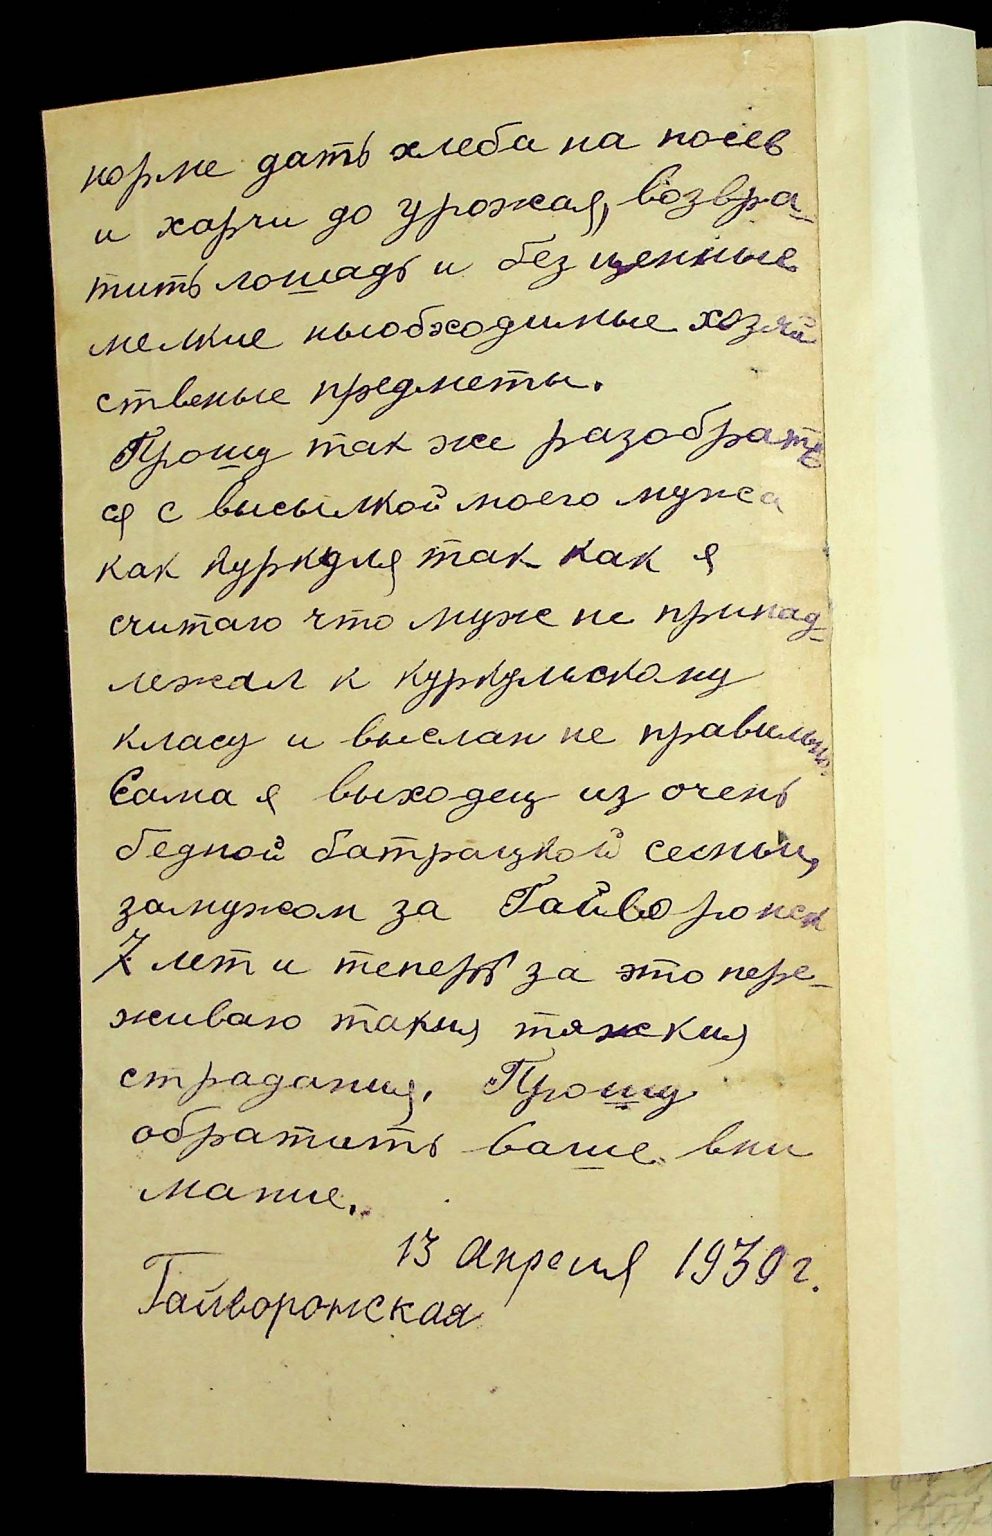 норме дать хлеба на посев
и харчи до урожая, возвра-
тить лошадь и без ценные
мелкие ньобходимые хозяй
ственые предметы.
Прошу так же разобрать
ся с высылкой моего мужа
как куркуля так как я
считаю что муж не принад-
лежал к куркульскому
класу и выслан не правильно.
Сама я выходец из очень
бедной батрацкой семьи,
замужом за Гайворонск
7 лет и теперь за это пере-
живаю такия тяжкия
страдания. Прошу
обратить ваше вни
мание.
13 Апреля 1930 г.
Гайворонская